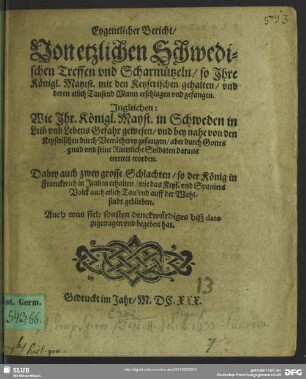 593
Eygentlicher Bericht/
Von etzlichen Schwedi-
schen Treffen vnd Scharmützeln/ so Ihre
Königl. Mayst. mit den Keyserischen gehalten/ vnd
deren etlich Tausend Mann erschlagen vnd gefangen.
Ingleichen:
Wie Ihr. Königl. Mayst. in Schweden in
Leib vnd Lebens Gefahr gewesen/ vnd bey nahe von den
Keyserischen durch Verrätherey gefangen/ aber durch Gottes
gnad vnd seine Ritterliche Soldaten daraus
errettet worden.
Dabey auch zwey grosse Schlachten/ so der König in
Franckreich in Italien erhalten/ wie das Keys. vnd Spaniers
Volck auch etlich Tausend auff der Wahl-
stadt geblieben.
Auch was sich sonsten denckwürdiges biß dato
zugetragen vnd begeben hat.
13
Gedruckt im Jahr/ M. DC. XXX.
Hist. Germ.
543,66.
7
SLUB
Wir führen Wissen.
gefördert von der
Deutschen Forschungsgemeinschaft
DFG